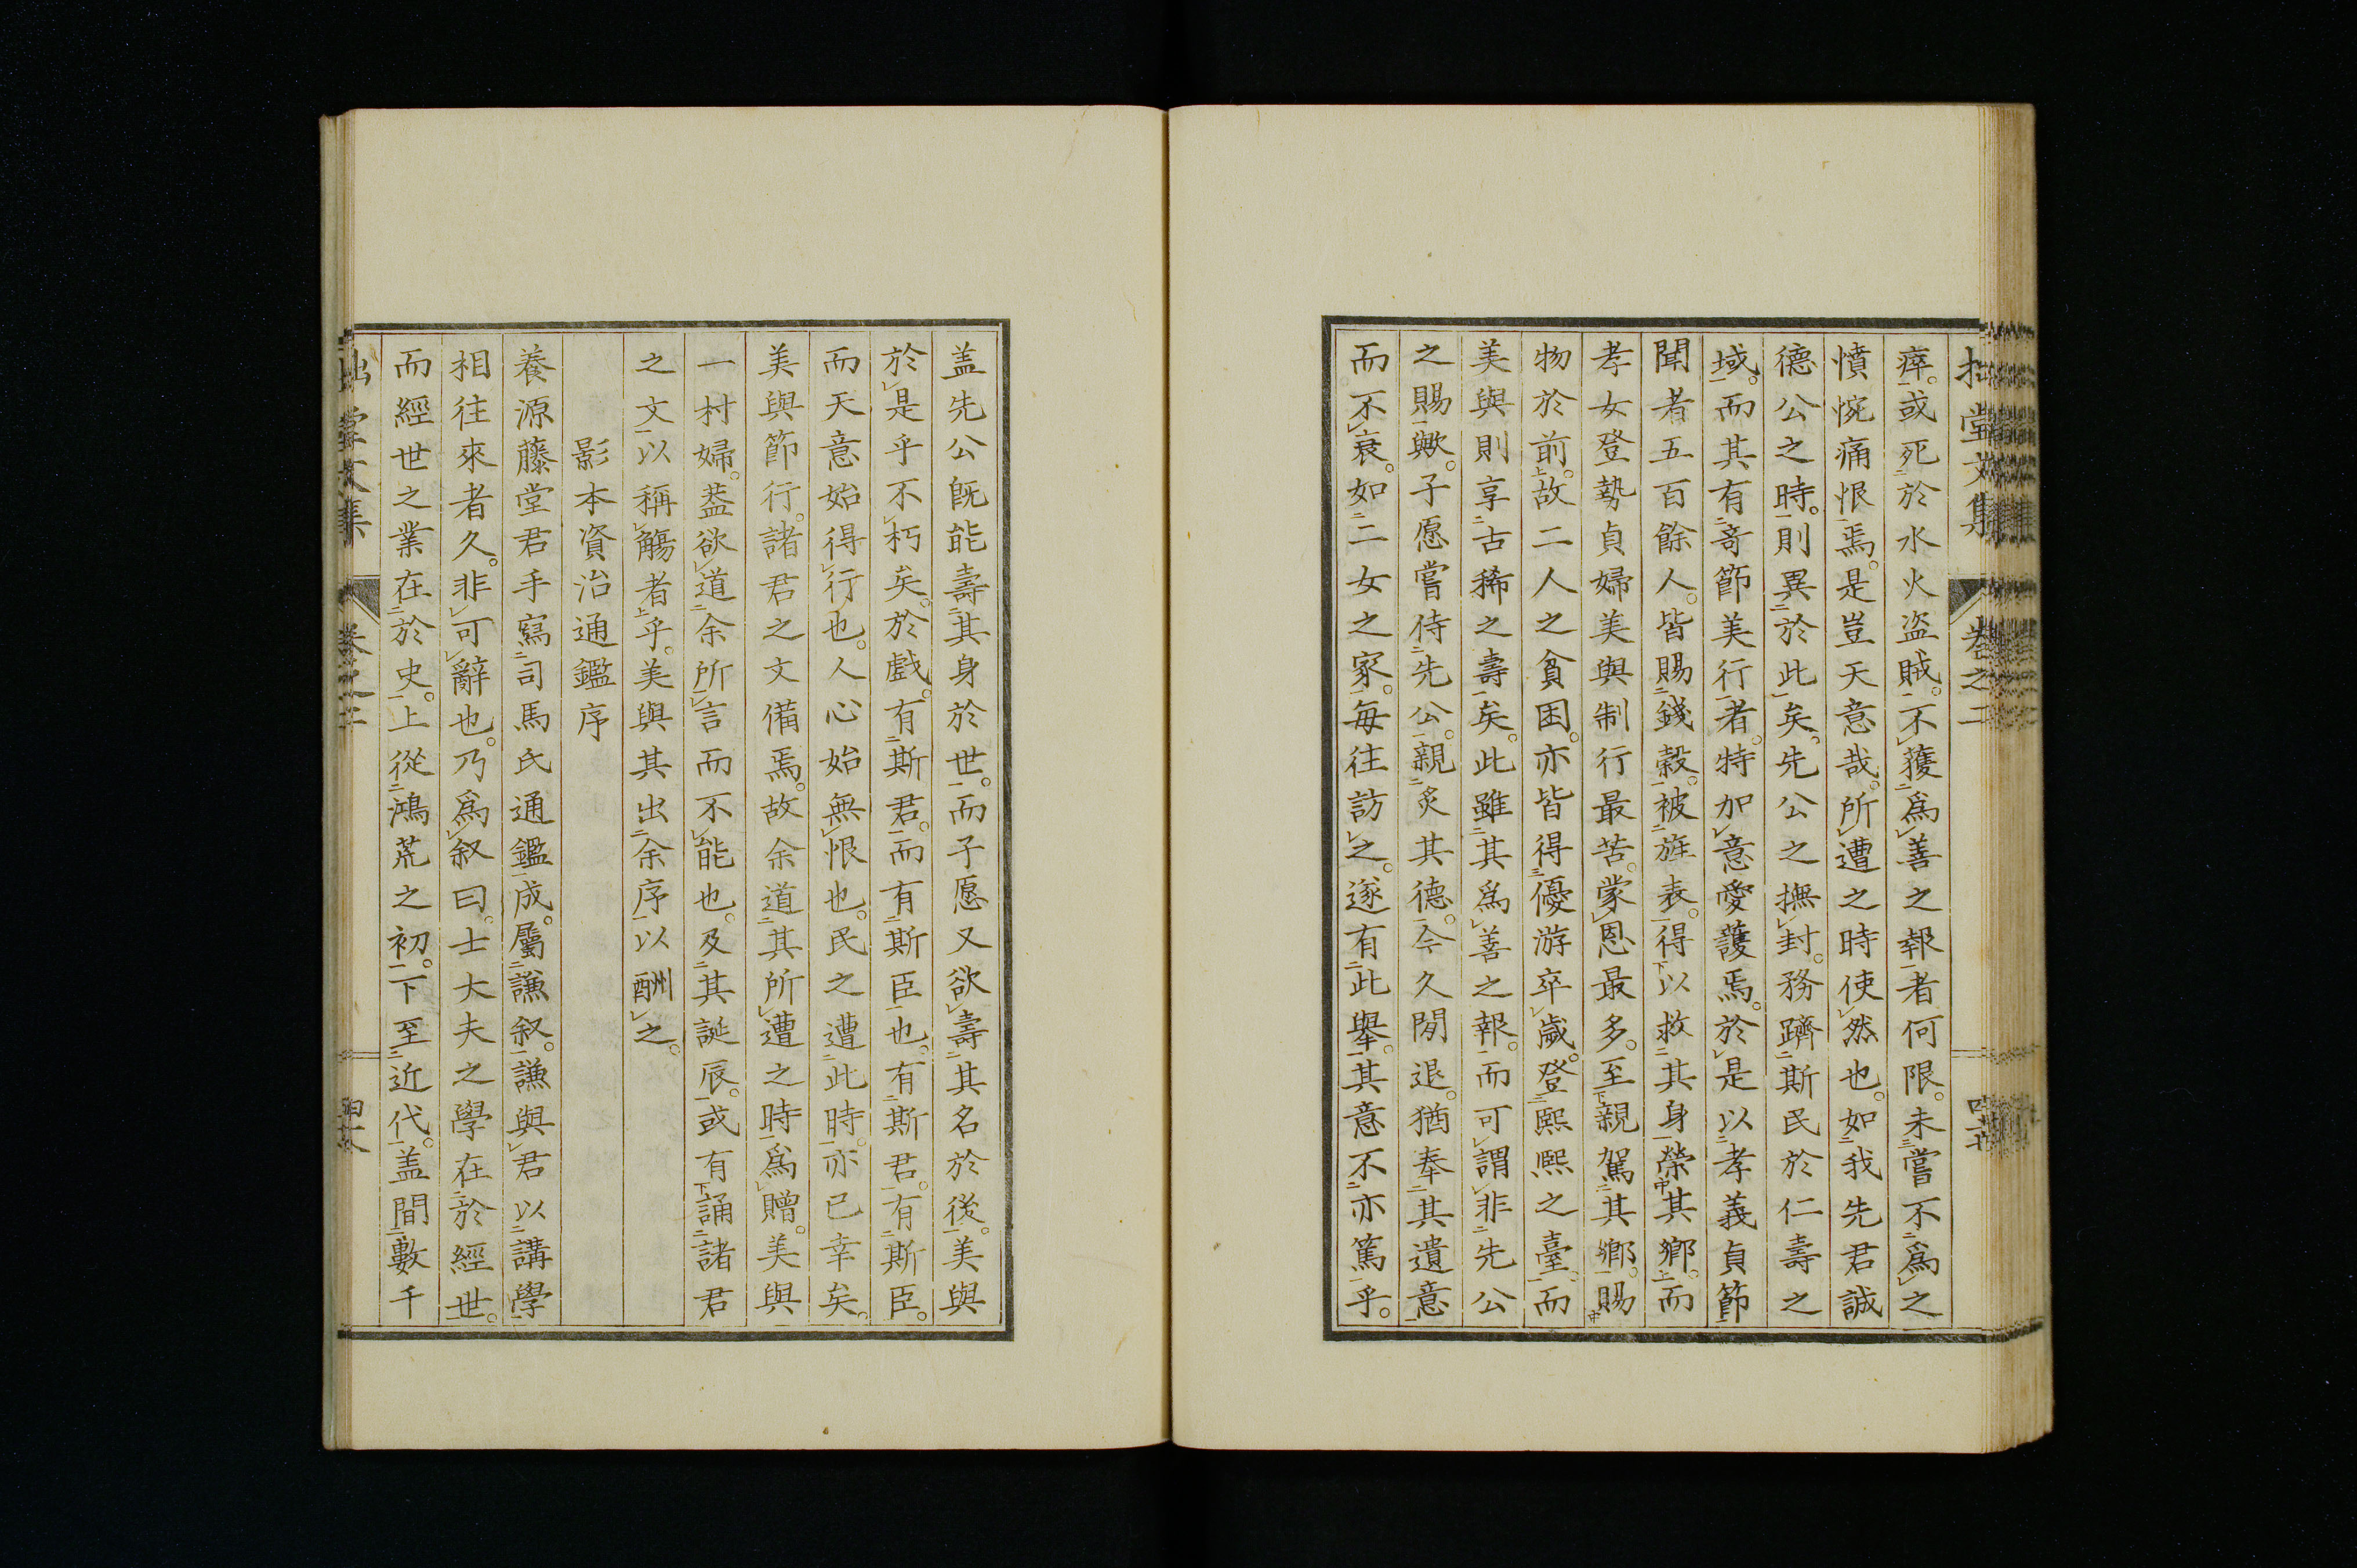 拙堂文集 卷之二
瘁。或死於水火盗賊。不獲爲善之報者何限。未嘗不爲之
憤惋痛恨焉。是豈天意哉。所遭之時使然也。如我先君誠
德公之時。則異於此矣。先公之撫封。務躋斯民於仁壽之
域。而其有奇節美行者。特加意愛護焉。於是以孝義貞節
聞者五百餘人。皆賜錢穀。被旌表。得以救其身榮其鄉。而
孝女登勢貞婦美與制行最苦。蒙恩最多。至親駕其鄉。賜
物於前。故二人之貧困。亦皆得優游卒歲。登熙熙之臺。而
美與則享古稀之壽矣。此雖其爲善之報。而可謂非先公
之賜歟。子愿嘗侍先公。親炙其德。今久閒退。猶奉其遺意
而不衰。如二女之家。每往訪之。遂有此舉。其意不亦篤乎。
盖先公旣能壽其身於世。而子愿又欲壽其名於後。美與
於是乎不朽矣。於戲。有斯君。而有斯臣也。有斯君。有斯臣。
而天意始得行也。人心始無恨也。民之遭此時。亦已幸矣。
美與節行。諸君之文備焉。故余道其所遭之時爲贈。美與
一村婦。葢欲道余所言而不能也。及其誕辰。或有誦諸君
之文以稱觴者乎。美與其出余序以酬之。
影本資治通鑑序
養源藤堂君手寫司馬氏通鑑成。屬謙叙。謙與君以講學
相往來者久。非可辭也。乃爲叙曰。士大夫之學在於經世。
而經世之業在於史。上從鴻荒之初。下至近代。盖間數千
拙堂文集 卷之二